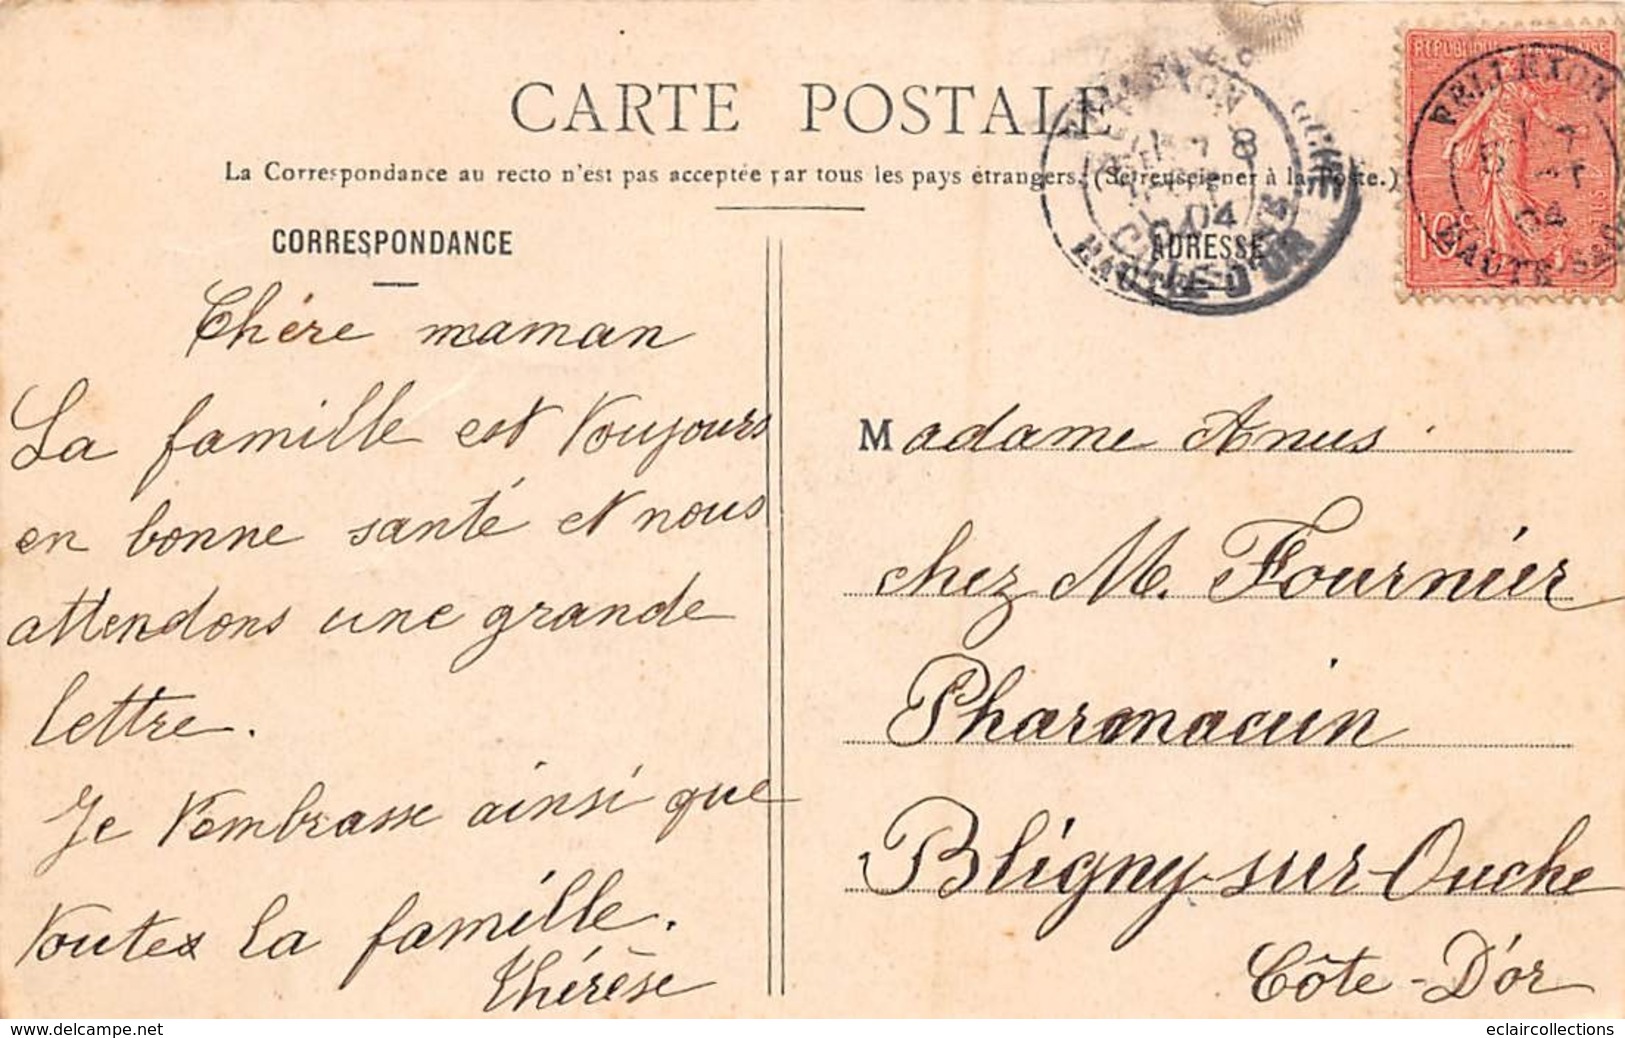 CARTE POSTALE
La Correspondance au recto n'est pas acceptée par tous les pays étrangers. (Se renseigner à la Poste.)
CORRESPONDANCE
Chére maman
La famille est toujours
en bonne santé et nous
attendons une grande
lettre.
Je t'embrasse ainsi que
toutes la famille.
Thérèse
ADRESSE
Madame Anus
chez M. Fournier
Pharmacien
Bligny-sur-Ouche
Côte-D'or
RÉPUBLIQUE FRANÇAISE
10c
04
HAUTE-SAÔNE
8
04
www.delcampe.net
eclaircollections